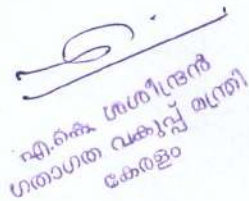 എ.കെ ശശീന്ദ്രൻ
ഗതാഗത വകുപ്പ് മന്ത്രി
കേരളം